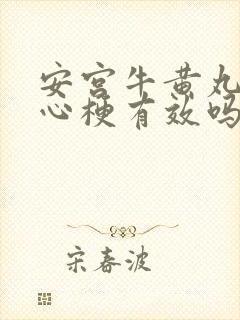 安宫牛黄丸
心梗有效吗
宋春波